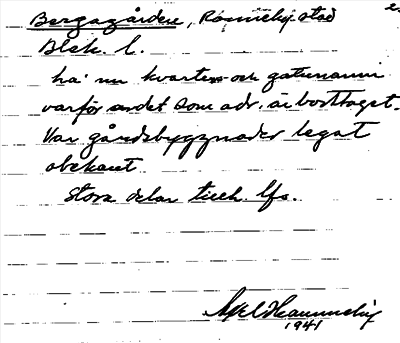 Bergagården, Ronneby stad
Blek. l.
ha nu kvarters- och gatunamn
varför ordet som adr. är borttaget.
Var gårdsbyggnader legat
obekant
Stora delar tillh. lfs.
Axel Hammeby
1941